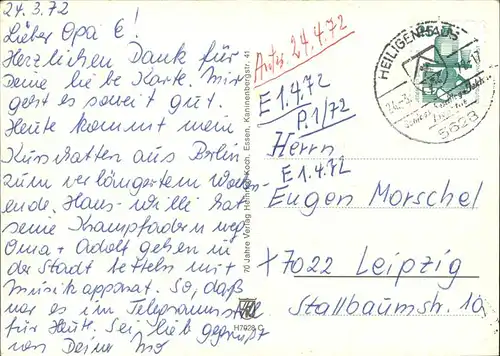 24.3.72
Lieber Opa E!
Herzlichen Dank für
Deine liebe Karte. Mir
geht es soweit gut.
Heute kommt mein
Kurschatten aus Berlin
zum verlängertem Wochen-
ende. Hans-Willi hat
seine Krampfadern weg
Oma + Adolf gehen in
der Stadt betteln mit
Musikapparat. So, daß
war es im Telegrammstil
für Heute. Sei lieb gegrüßt
von Deine
70 Jahre Verlag Heinrich Koch, Essen, Kaninenbergstr. 41
H7028 C
Antw. 24.4.72
E 1.4.72
P.1/72
HEILIGENHAUS
5628
Herrn
E 1.4.72
Eugen Morschel
X 7022 Leipzig
Stallbaumstr. 10